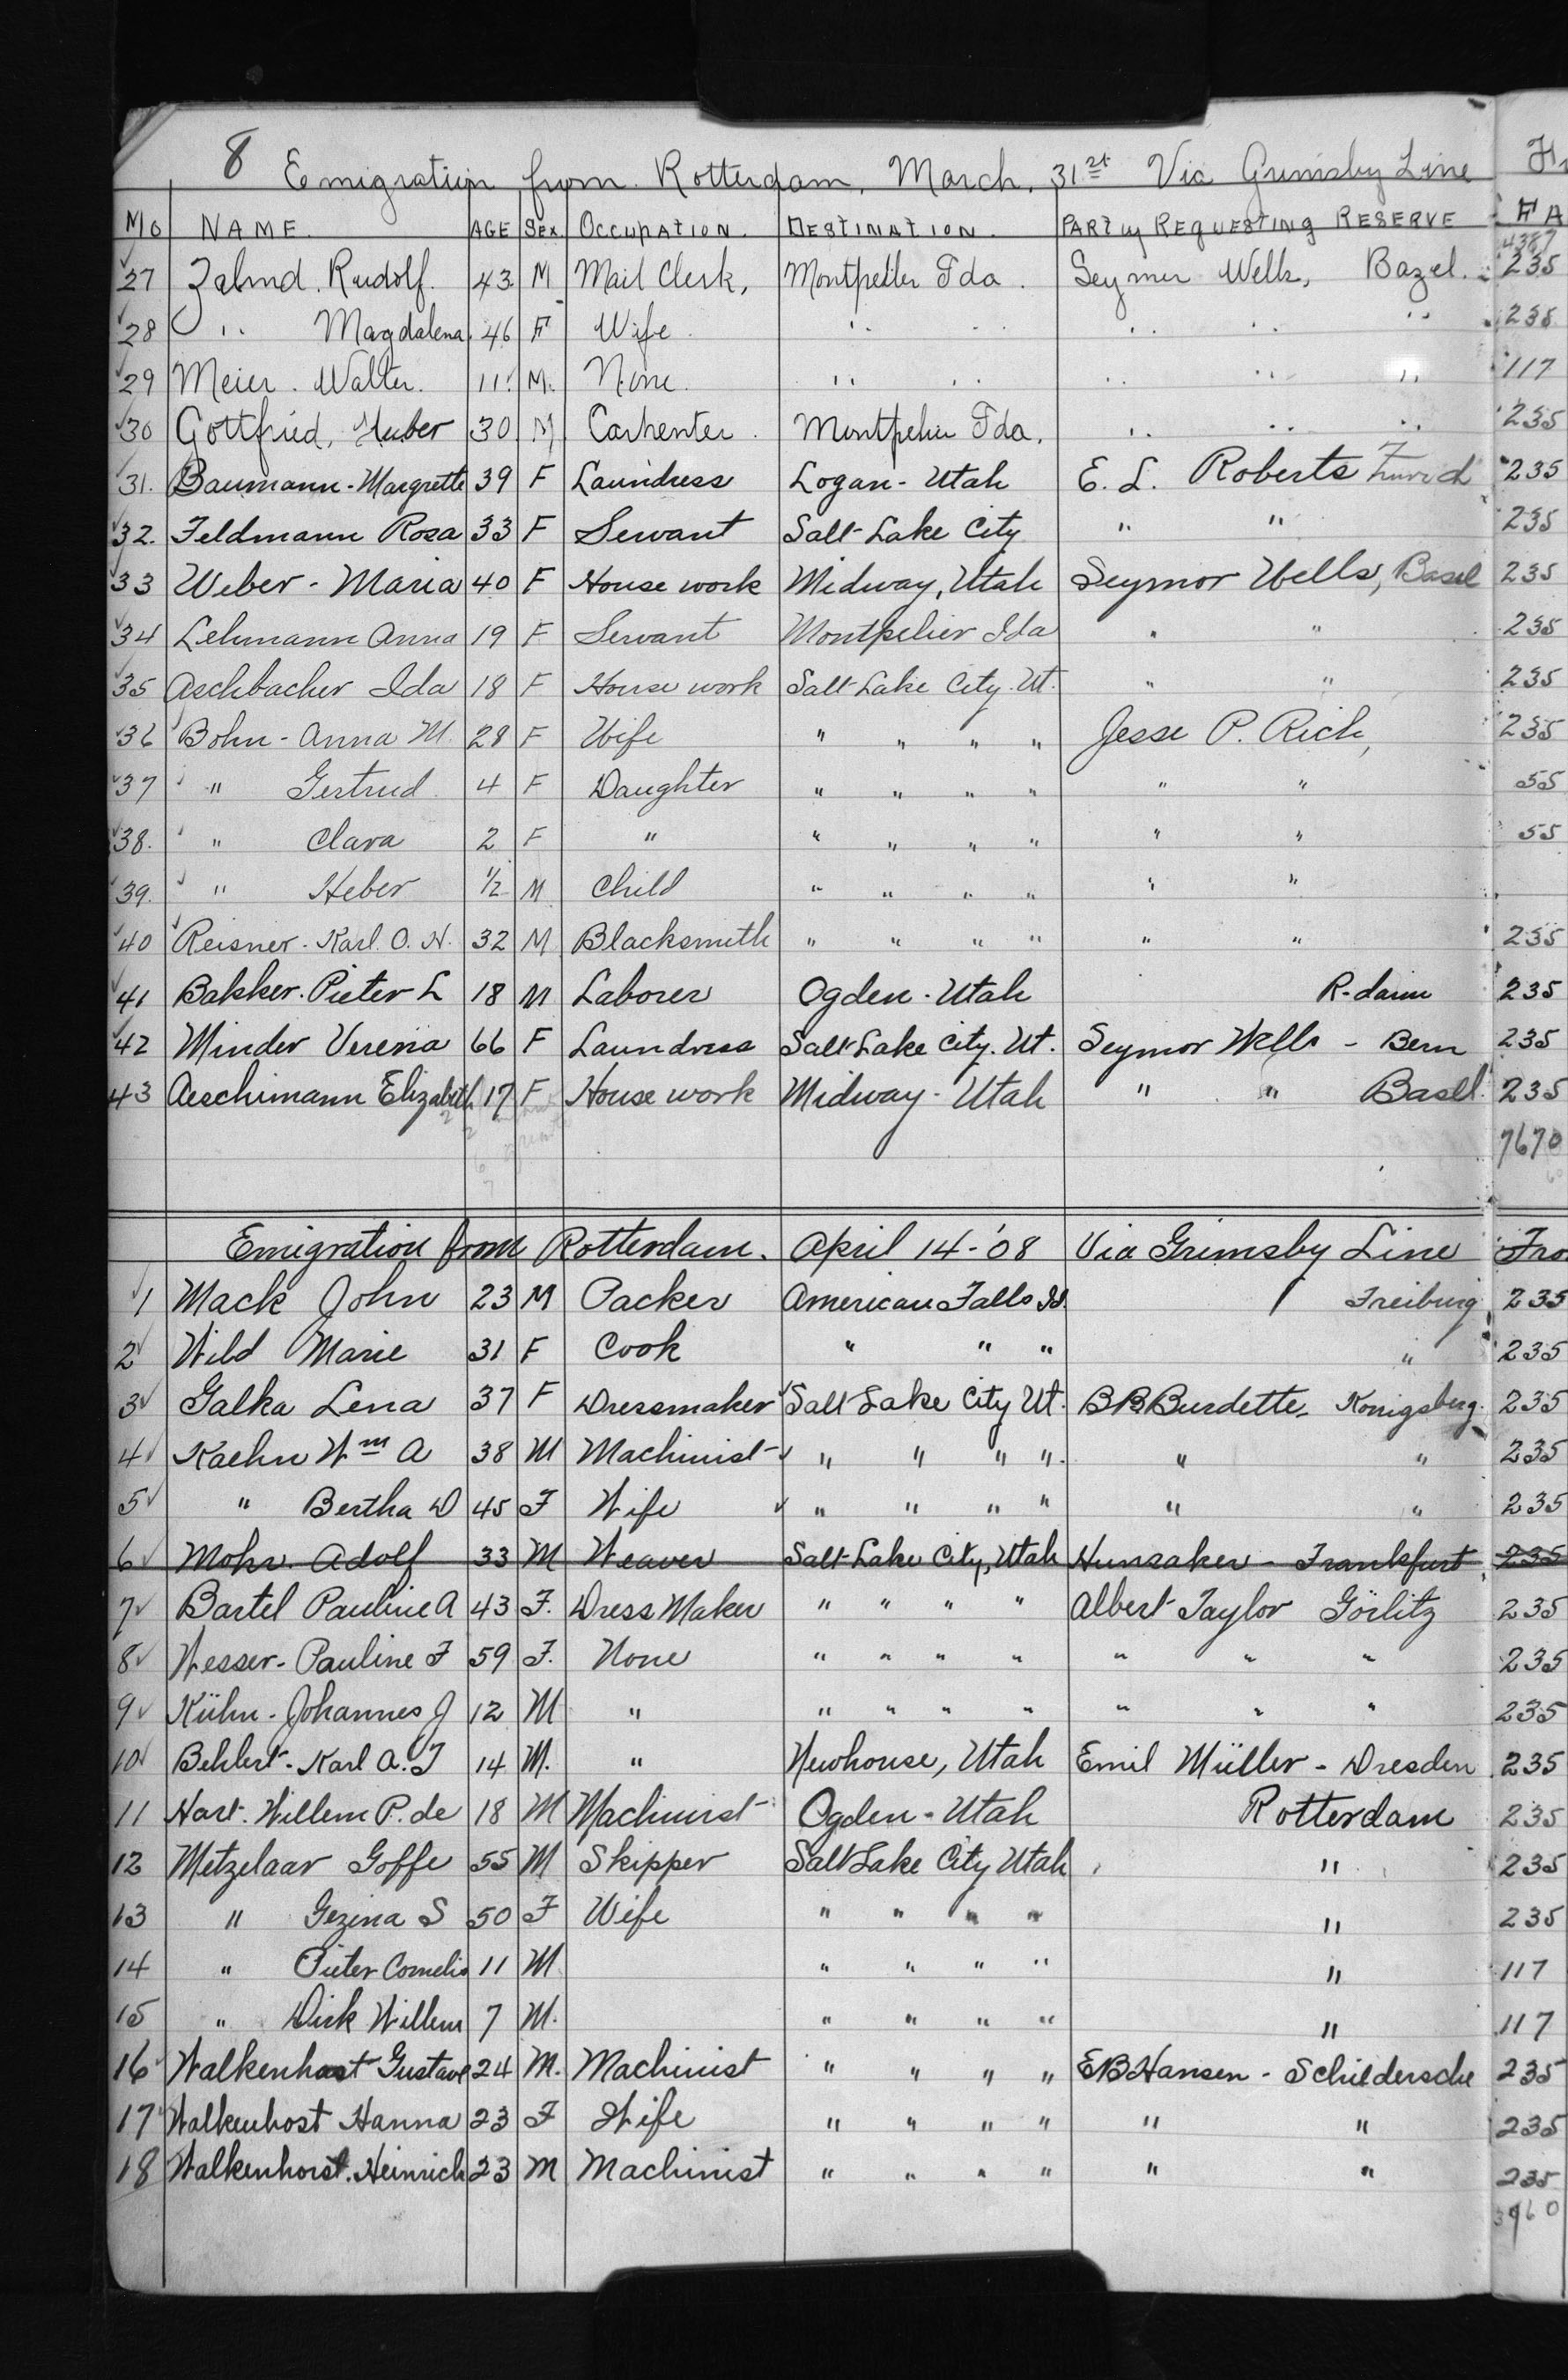 8 Emigration from Rotterdam, March, 31st Via Grimsby Line
No NAME. AGE SEX OCCUPATION. DESTINATION. PARTY REQUESTING RESERVE FA
4387
27 Zahnd. Rudolf. 43 M Mail Clerk, Montpelier Ida. Seymer Wells, Bazel. 235
28 " Magdalena. 46 F Wife. " " " " " 235
29 Meier. Walter. 11. M. None. " " " " " 117
30 Gottfried, Huber 30 M Carpenter. Montpelier Ida. " " " 235
31. Baumann-Margrette 39 F Laundress Logan-Utah E. L. Roberts Zurich 235
32. Feldmann Rosa 33 F Servant Salt-Lake City " " 235
33 Weber-Maria 40 F House work Midway, Utah Seymor Wells, Basel 235
34 Lehmann Anna 19 F Servant Montpelier Ida " " 235
35 Aschbacher Ida 18 F House work Salt-Lake City. Ut. " " 235
36 Bohn-Anna M. 28 F Wife " " " " Jesse P. Rich, 235
37 " Gertrud 4 F Daughter " " " " " " 55
38. " Clara 2 F " " " " " " " 55
39. " Heber 1/2 M Child " " " " " "
40 Reisner. Karl. O. H. 32 M Blacksmith " " " " " " 235
41 Bakker. Pieter L 18 M Laborer Ogden-Utah R-dam 235
42 Minder Verena 66 F Laundress Salt-Lake City. Ut. Seymor Wells - Bern 235
43 Aeschimann Elizabeth 17 F House work Midway-Utah " " Basel. 235
7670
Emigration from Rotterdam. April 14-'08 Via Grimsby Line Fro
1 Mack John 23 M Packer American Falls Id. Freiburg 235
2 Wild Marie 31 F Cook " " " " 235
3 Galka Lena 37 F Dressmaker Salt-Lake City Ut. BBBurdette- Konigsberg. 235
4 Kaehn Wm A 38 M Machinist " " " ". " " 235
5 " Bertha D 45 F Wife " " " " " " 235
6 Mohr. Adolf 33 M Weaver Salt-Lake City, Utah Hunsaker - Frankfurt 235
7 Bartel Pauline A 43 F. Dress Maker " " " " Albert Taylor Görlitz 235
8 Wesser-Pauline F 59 F. None " " " " " " " 235
9 Kühn-Johannes J 12 M " " " " " " " " 235
10 Behlert-Karl A. T 14 M. " Newhouse, Utah Emil Müller - Dresden 235
11 Hart. Willem P. de 18 M Machinist Ogden-Utah Rotterdam 235
12 Metzelaar Goffe 55 M Skipper Salt Lake City Utah " 235
13 " Gezina S 50 F Wife " " " " " 235
14 " Pieter Cornelis 11 M " " " " " 117
15 " Dirk Willem 7 M. " " " " " 117
16 Walkenhost Gustave 24 M. Machinist " " " " EBHansen - Schildersche 235
17 Walkenhost Hanna 23 F Wife " " " " " " 235
18 Walkenhorst. Heinrich 23 M Machinist " " " " " " 235
3960